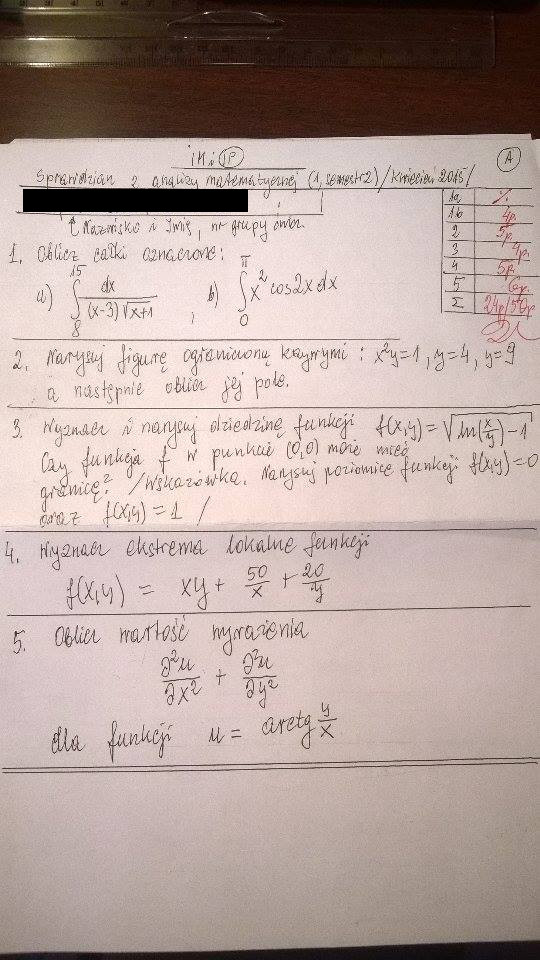 IM i JP
A
Sprawdzian z analizy matematycznej (1, semestr 2) /kwiecień 2015/
↑ Nazwisko i Imię, nr grupy ćwicz.
1a
1b 4p.
2 5p.
3 4p.
4 5p.
5 6p.
Σ 24p/
1. Oblicz całki oznaczone:
a) ∫_8^15 dx/((x-3)√(x+1)) , b) ∫_0^π x² cos2x dx
2. Narysuj figurę ograniczoną krzywymi: x²y=1, y=4, y=9
a następnie oblicz jej pole.
3. Wyznacz i narysuj dziedzinę funkcji f(x,y)=√(ln(x/y)-1)
Czy funkcja f w punkcie (0,0) może mieć
granicę? /Wskazówka. Narysuj poziomicę funkcji f(x,y)=0
oraz f(x,y)=1 /
4. Wyznacz ekstrema lokalne funkcji
f(x,y) = xy + 50/x + 20/y
5. Oblicz wartość wyrażenia
∂²u/∂x² + ∂²u/∂y²
dla funkcji u = arctg y/x